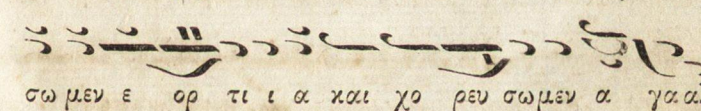 σω μεν ε ορ τι ι α και χο ρευ σωμεν α γα αλ